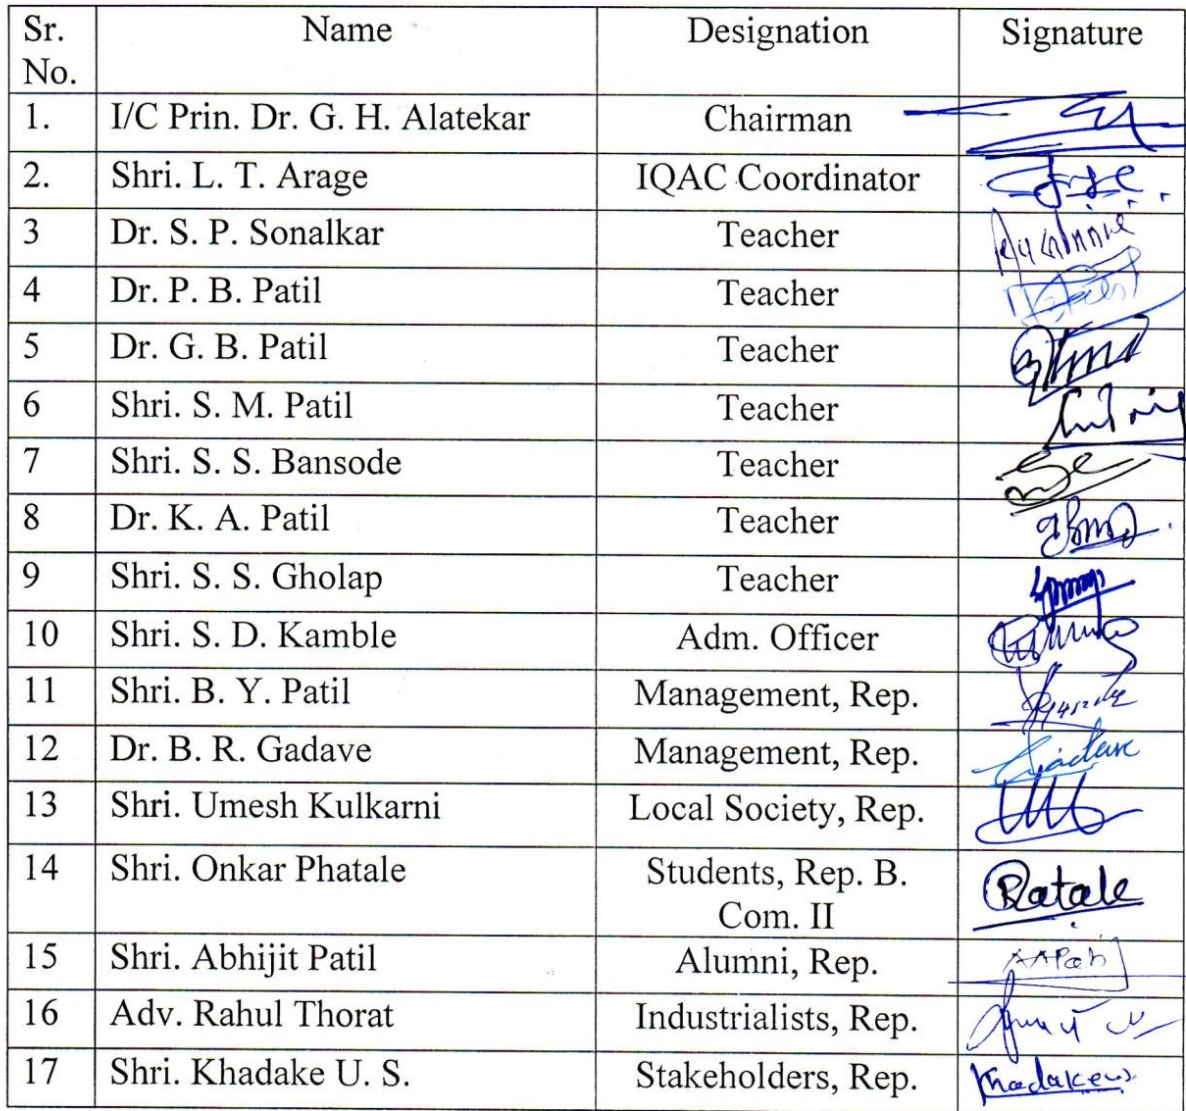 Sr. No. Name Designation Signature
1. I/C Prin. Dr. G. H. Alatekar Chairman
2. Shri. L. T. Arage IQAC Coordinator
3 Dr. S. P. Sonalkar Teacher
4 Dr. P. B. Patil Teacher
5 Dr. G. B. Patil Teacher
6 Shri. S. M. Patil Teacher
7 Shri. S. S. Bansode Teacher
8 Dr. K. A. Patil Teacher
9 Shri. S. S. Gholap Teacher
10 Shri. S. D. Kamble Adm. Officer
11 Shri. B. Y. Patil Management, Rep.
12 Dr. B. R. Gadave Management, Rep.
13 Shri. Umesh Kulkarni Local Society, Rep.
14 Shri. Onkar Phatale Students, Rep. B.
Com. II
15 Shri. Abhijit Patil Alumni, Rep.
16 Adv. Rahul Thorat Industrialists, Rep.
17 Shri. Khadake U. S. Stakeholders, Rep.